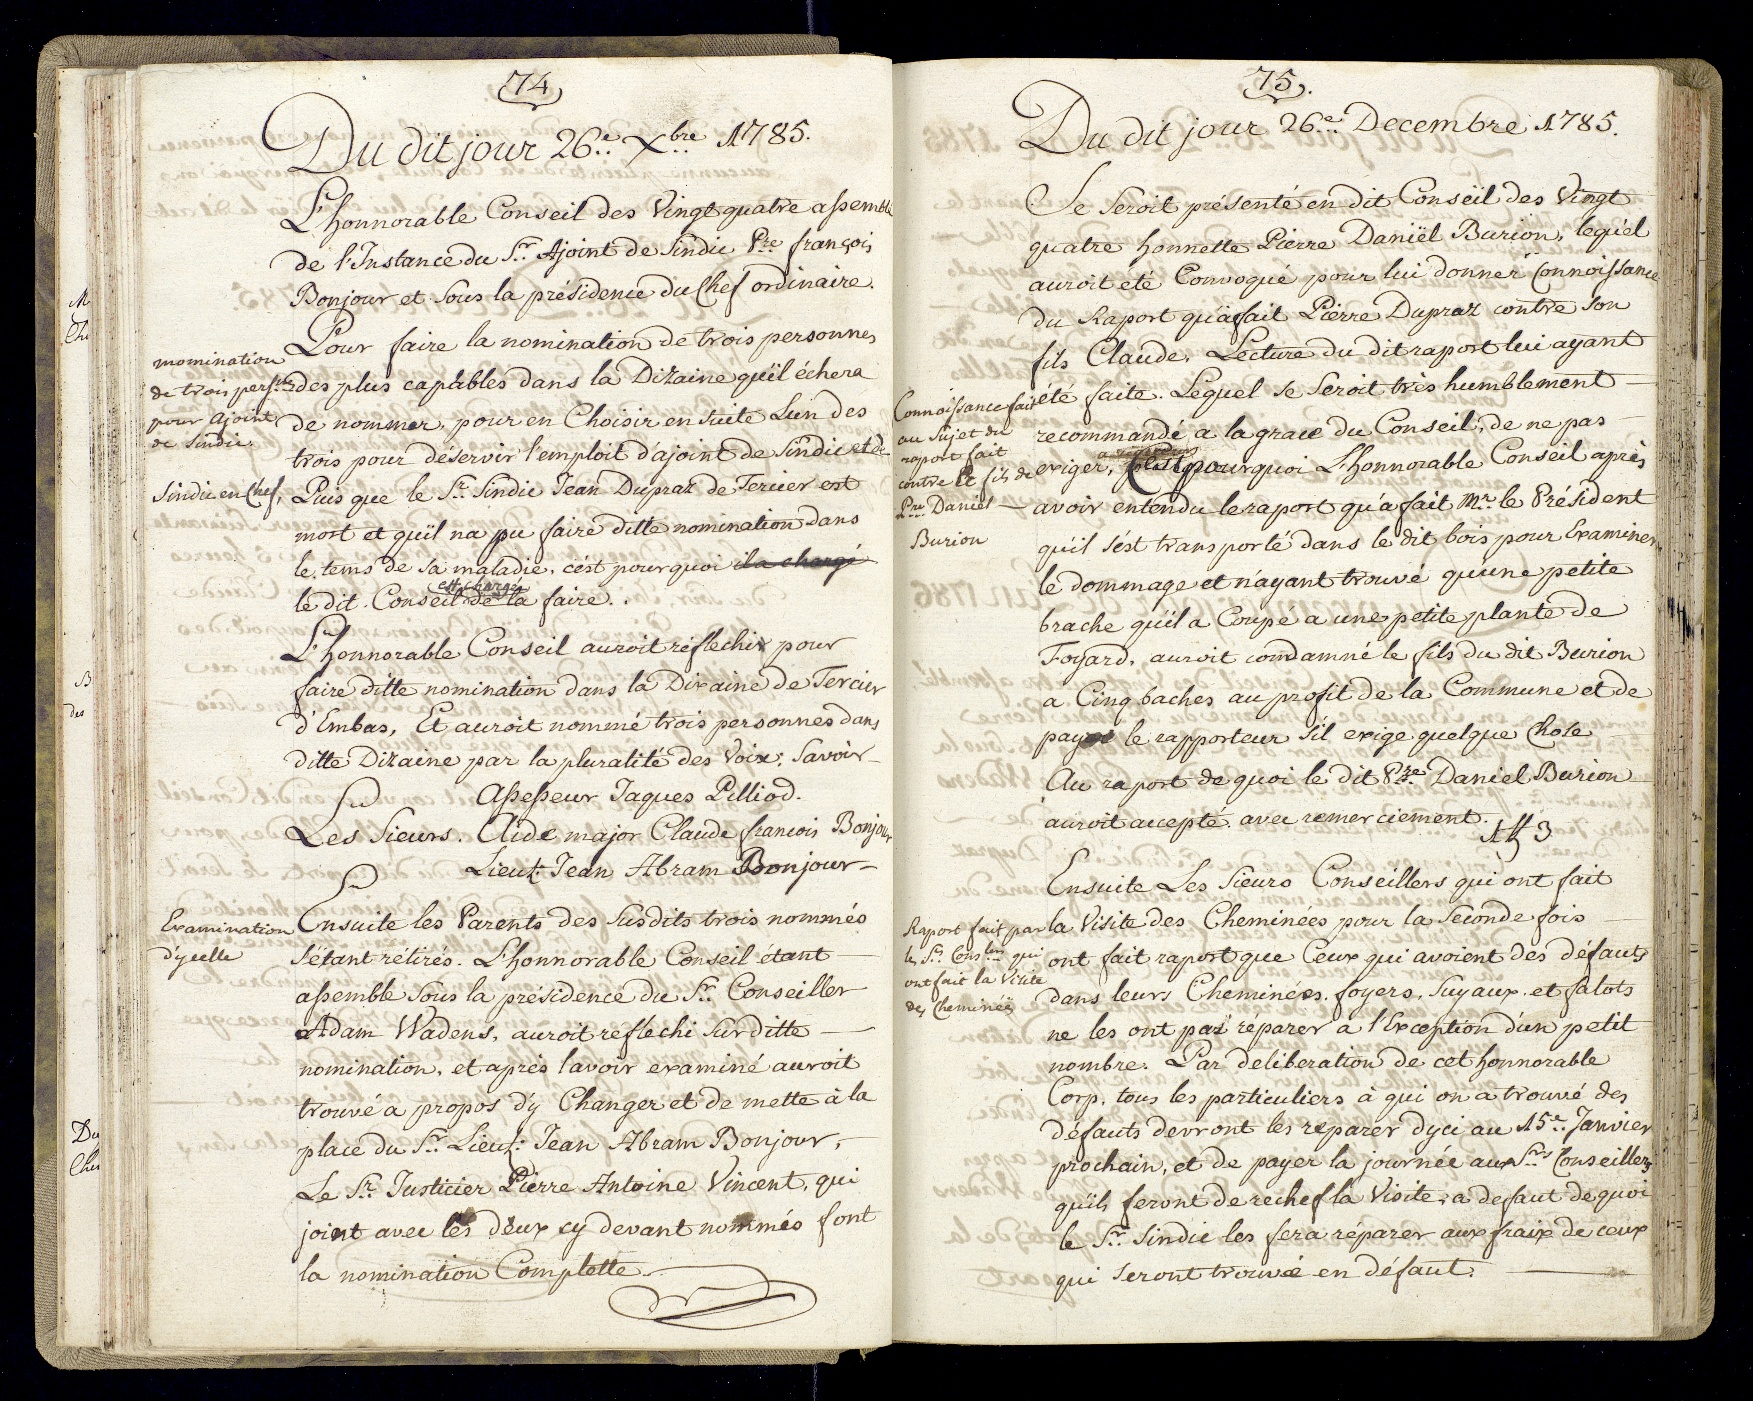 74
Du dit jour 26.e Xbre 1785.
L'honnorable Conseil des Vingt quatre assemblé
de l'Instance du Sr. Ajoint de Sindic Pre françois
Bonjour et sous la présidence du Chef ordinaire.
Pour faire la nomination de trois personnes
nomination
de trois persnes
pour Ajoint
de Sindic
des plus capables dans la Dizaine quïl échera
de nommer, pour en Choisir en suite L'un des
trois pour déservir l'emploit d'ajoint de Sindic et de
Sindic en Chef, Puis que le Sr. Sindic Jean Dupraz de Tercier est
mort et quïl na pu faire ditte nomination dans
le tems de sa maladie, c'ést pourquoi il a chargé
est chargé
le dit Conseil de la faire.
L'honnorable Conseil auroit réflechir pour
faire ditte nomination dans la Dixaine de Tercier
d'Embas, Et auroit nommé trois personnes dans
ditte Dizaine par la pluralité des Voix; Savoir
Assesseur Jaques Pilliod.
Les Sieurs. Aide major Claude francois Bonjour
Lieut: Jean Abram Bonjour
Examination
d'ycelle
Ensuite les Parents des Susdits trois nommés
s'étant rétirés. L'honnorable Conseil étant
assemble Sous la présidence du Sr. Conseiller
Adam Wadens, auroit réflechi Sur ditte
nomination, et aprés l'avoir examiné auroit
trouvé a propos d'y Changer et de mette à la
place du Sr. Lieut: Jean Abram Bonjour,
Le Sr. Justicier Pierre Antoine Vincent, qui
joint avec les deux cy devant nommés font
la nomination Complette
75.
Du dit jour 26.e Decembre 1785.
Se Seroit présenté en dit Conseïl des Vingt
quatre honnette Pierre Daniël Burion, lequel
auroit été Convoqué pour lui donner Connoissance
du Raport qu'a fait Pierre Dupraz contre son
fils Claude, Lecture du dit raport lui ayant
été faite. Lequel se Seroit très humblement
Connoissance fait
au Sujet du
raport fait
contre le fils de
Pre Daniel
Burion
recommandé a la grace du Conseil, de ne pas
exiger, pourquoi L'honnorable Conseil après
avoir entendu le raport qu'a fait Mr. le Président
qu'il s'ést transporté dans le dit bois pour Examiner
le dommage et n'ayant trouvé qu'une petite
brache qu'il a Coupé a une petite plante de
Foyard, auroit condamné le fils du dit Burion
a Cinq baches au profit de la Commune et de
payé le rapporteur s'il exige quelque Chose
Au raport de quoi le dit Pre Daniel Burion
auroit accepté avec remerciement.
Ensuite Les Sieurs Conseillers qui ont fait
Raport fait par
les Srs. Conslers qui
ont fait la Visite
des Cheminées
la Visite des Cheminées pour la Seconde fois
ont fait raport que Ceux qui avoient des défauts
dans leurs Cheminées, foyers, tuyaux et falots
ne les ont pas réparer a l'Exception d'un petit
nombre. Par deliberation de cet honnorable
Corp, tous les particuliers à qui on a trouvé des
défauts devront les reparer d'yci au 15e. Janvier
prochain, et de payer la journée aux Srs Conseillers
qu'ils feront de rechef la Visite, a defaut de quoi
le Sr. Sindic les fera réparer aux fraix de ceux
qui seront trouvé en défaut.